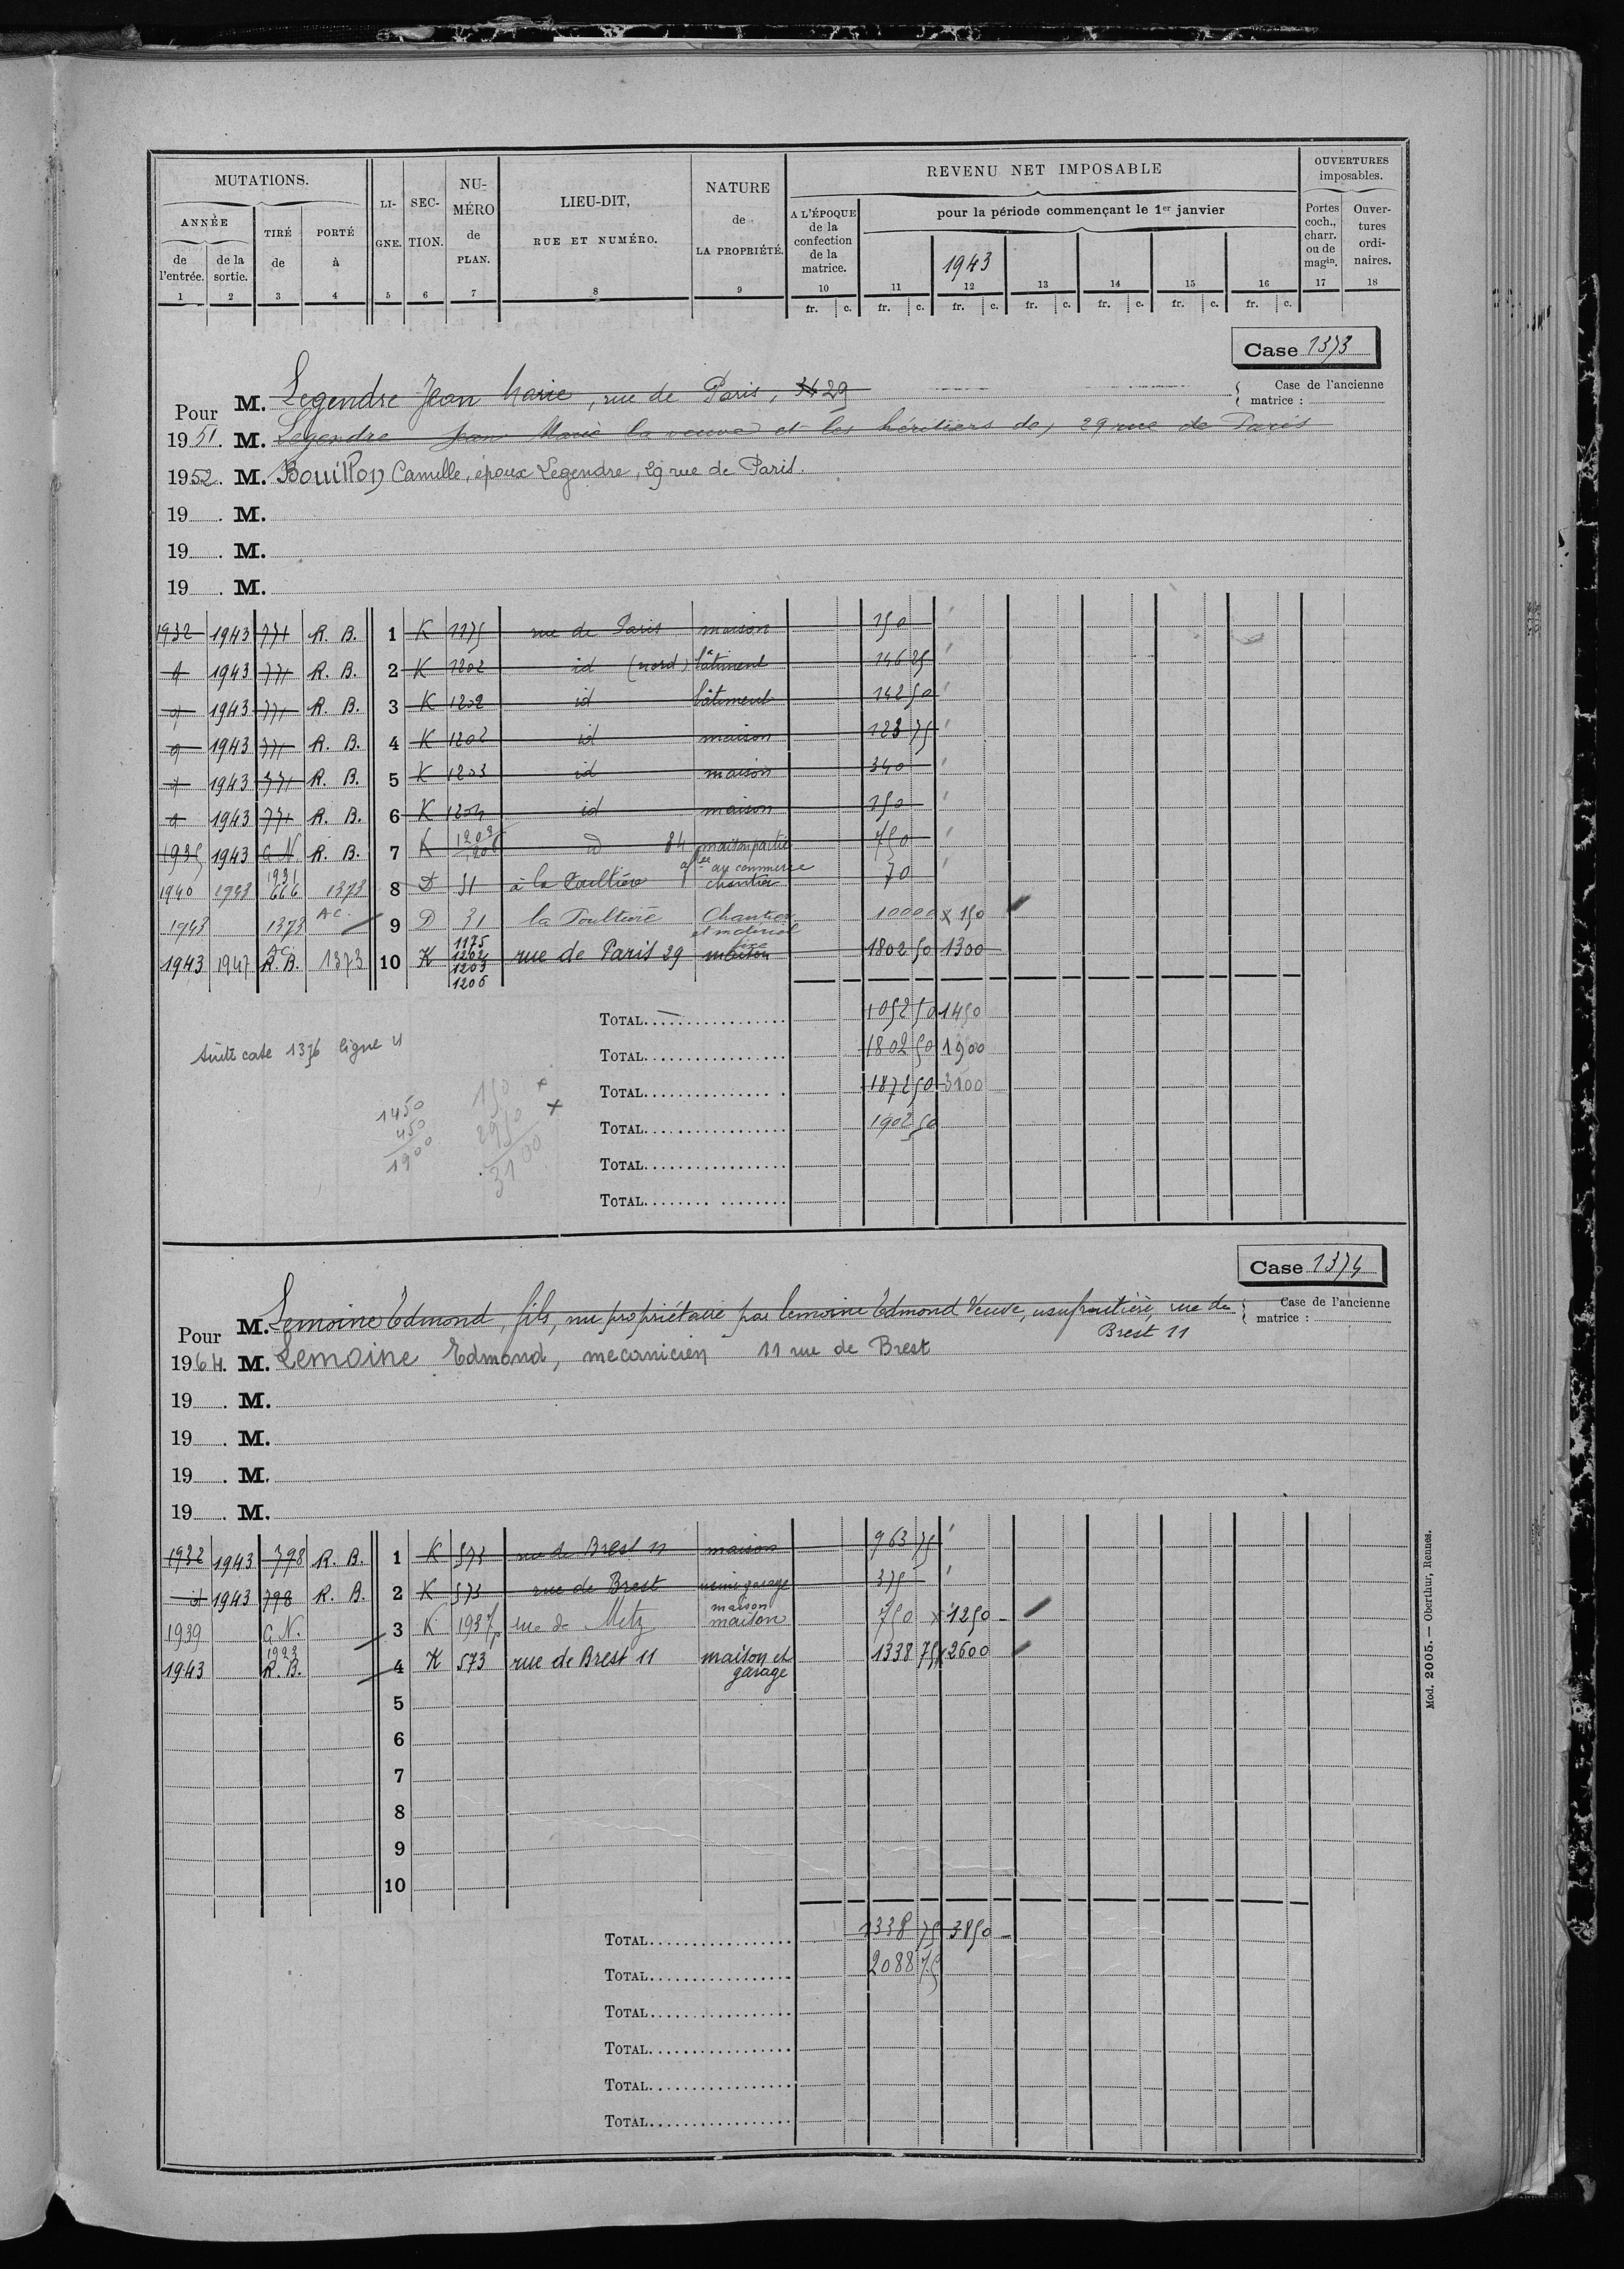 MUTATIONS.
ANNÉE
de l'entrée.
de la sortie.
TIRÉ de
PORTÉ à
LI-GNE.
SEC-TION.
NU-MÉRO de PLAN.
LIEU-DIT, RUE ET NUMÉRO.
NATURE de LA PROPRIÉTÉ.
REVENU NET IMPOSABLE
A L'ÉPOQUE de la confection de la matrice.
pour la période commençant le 1er janvier
1943
OUVERTURES imposables.
Portes coch., charr. ou de magin.
Ouver-tures ordi-naires.
1 2 3 4 5 6 7 8 9 10 11 12 13 14 15 16 17 18
fr. c. fr. c. fr. c. fr. c. fr. c. fr. c. fr. c.
Case 1373
Case de l'ancienne matrice :
Pour M. Legendre Jean Marie, rue de Paris, 34 29
1951. M. Legendre Jean Marie la veuve et les héritiers de, 29 rue de Paris
1952. M. Bouillon Camille, époux Legendre, 29 rue de Paris.
19 . M.
19 . M.
19 . M.
1932 1943 771 R. B. 1 K 1175 rue de Paris maison 150
d 1943 771 R. B. 2 K 1202 id (nord) bâtiment 146 25
d 1943 771 R. B. 3 K 1202 id bâtiment 142 50
d 1943 771 R. B. 4 K 1202 id maison 123 75
d 1943 771 R. B. 5 K 1203 id maison 340
d 1943 771 R. B. 6 K 1204 id maison 150
1935 1943 C.N. R. B. 7 K id 84 maison partie 750
affée au commerce
1940 1943 1931 666 1373 8 D 31 à la chantier 70
1943 1373 A C. 9 D 31 la Chantier et matériel 100 00 x 150
1943 1947 AC. R. B. 1373 10 K 1175 1202 1203 1206 rue de Paris 29 maison 1802 50 1300
TOTAL 1052 50 1450
TOTAL 1802 50 1900
TOTAL 1872 50 3100
TOTAL 1902 50
TOTAL
TOTAL
Suite case 1376 ligne 4
1450
450
1900
150 +
2950 +
3100
Case 1374
Case de l'ancienne matrice :
Pour M. Lemoine Edmond, fils, nu propriétaire par Lemoine Edmond Veuve, usufruitière, rue de
Brest 11
1964. M. Lemoine Edmond, mecanicien 11 rue de Brest
19 . M.
19 . M.
19 . M.
19 . M.
1932 1943 798 R. B. 1 K 573 rue de Brest 11 maison 963 75
d 1943 798 R. B. 2 K 573 rue de Brest usine garage 375
1939 C.N. 3 K 1937p rue de Metz maison maison 750 x 1250
1943 1923 R. B. 4 K 573 rue de Brest 11 maison et garage 1338 75 x 2600
5
6
7
8
9
10
TOTAL 1338 75 3850
TOTAL 2088 75
TOTAL
TOTAL
TOTAL
TOTAL
Mod. 2005. — Oberthur, Rennes.